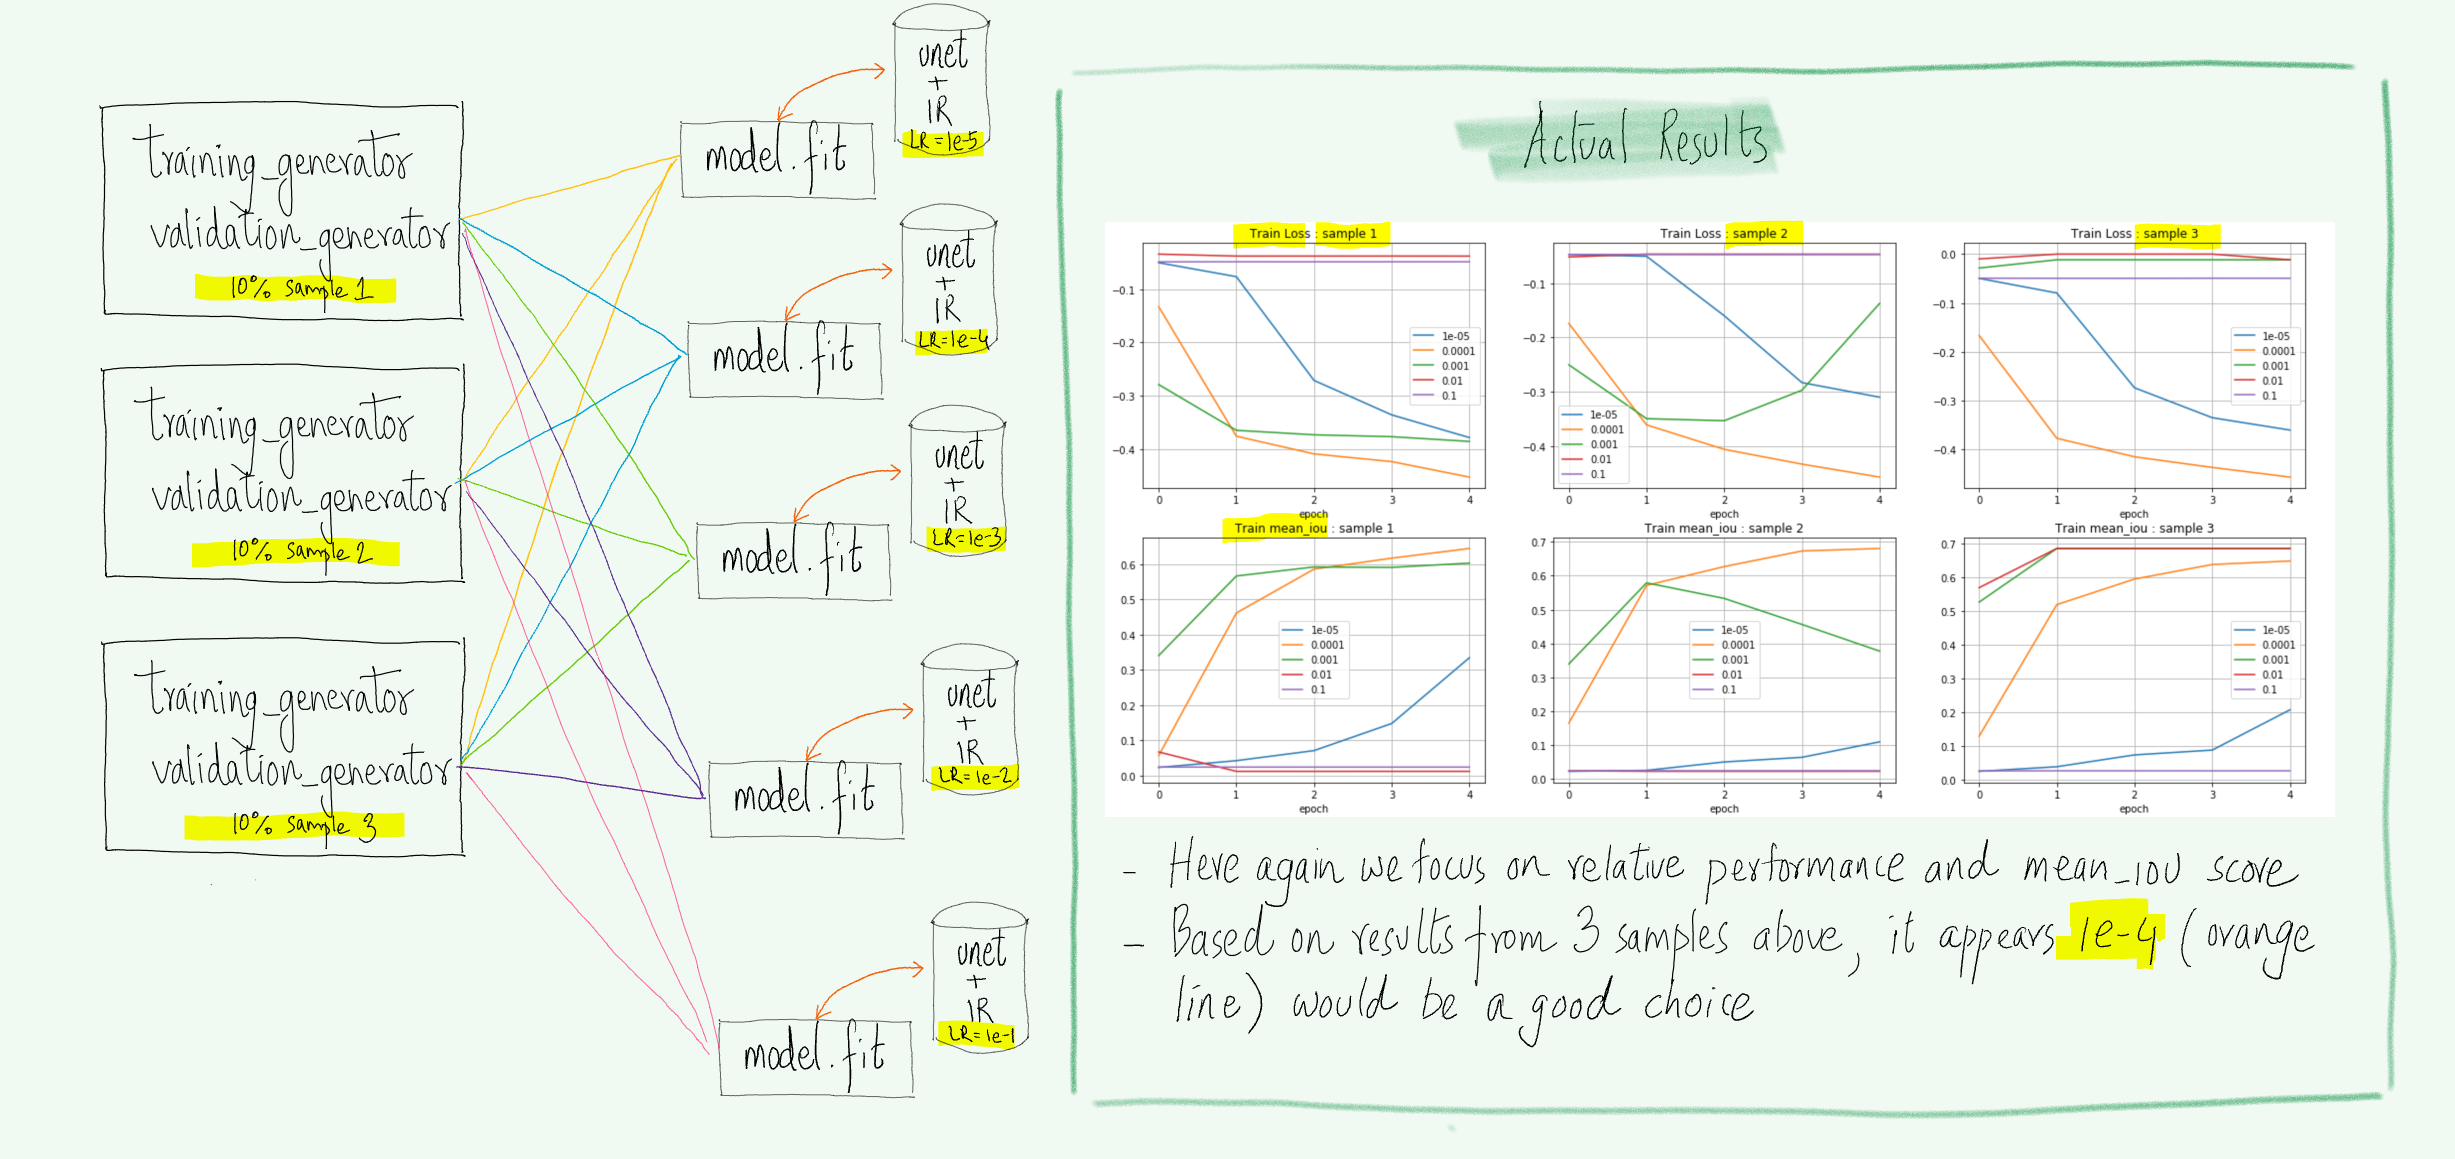 training_generator
validation_generator
10% Sample 1
training_generator
validation_generator
10% Sample 2
training_generator
validation_generator
10% Sample 3
model.fit
unet
+
IR
LR=1e-5
model.fit
unet
+
IR
LR=1e-4
model.fit
unet
+
IR
LR=1e-3
model.fit
unet
+
IR
LR=1e-2
model.fit
unet
+
IR
LR=1e-1
Actual Results
Train Loss : sample 1
−0.1
−0.2
−0.3
−0.4
1e-05
0.0001
0.001
0.01
0.1
0 1 2 3 4
epoch
Train Loss : sample 2
−0.1
−0.2
−0.3
−0.4
1e-05
0.0001
0.001
0.01
0.1
0 1 2 3 4
epoch
Train Loss : sample 3
0.0
−0.1
−0.2
−0.3
−0.4
1e-05
0.0001
0.001
0.01
0.1
0 1 2 3 4
epoch
Train mean_iou : sample 1
0.6
0.5
0.4
0.3
0.2
0.1
0.0
1e-05
0.0001
0.001
0.01
0.1
0 1 2 3 4
epoch
Train mean_iou : sample 2
0.7
0.6
0.5
0.4
0.3
0.2
0.1
0.0
1e-05
0.0001
0.001
0.01
0.1
0 1 2 3 4
epoch
Train mean_iou : sample 3
0.7
0.6
0.5
0.4
0.3
0.2
0.1
0.0
1e-05
0.0001
0.001
0.01
0.1
0 1 2 3 4
epoch
- Here again we focus on relative performance and mean_IOU score
- Based on results from 3 samples above, it appears 1e-4 (orange
line) would be a good choice